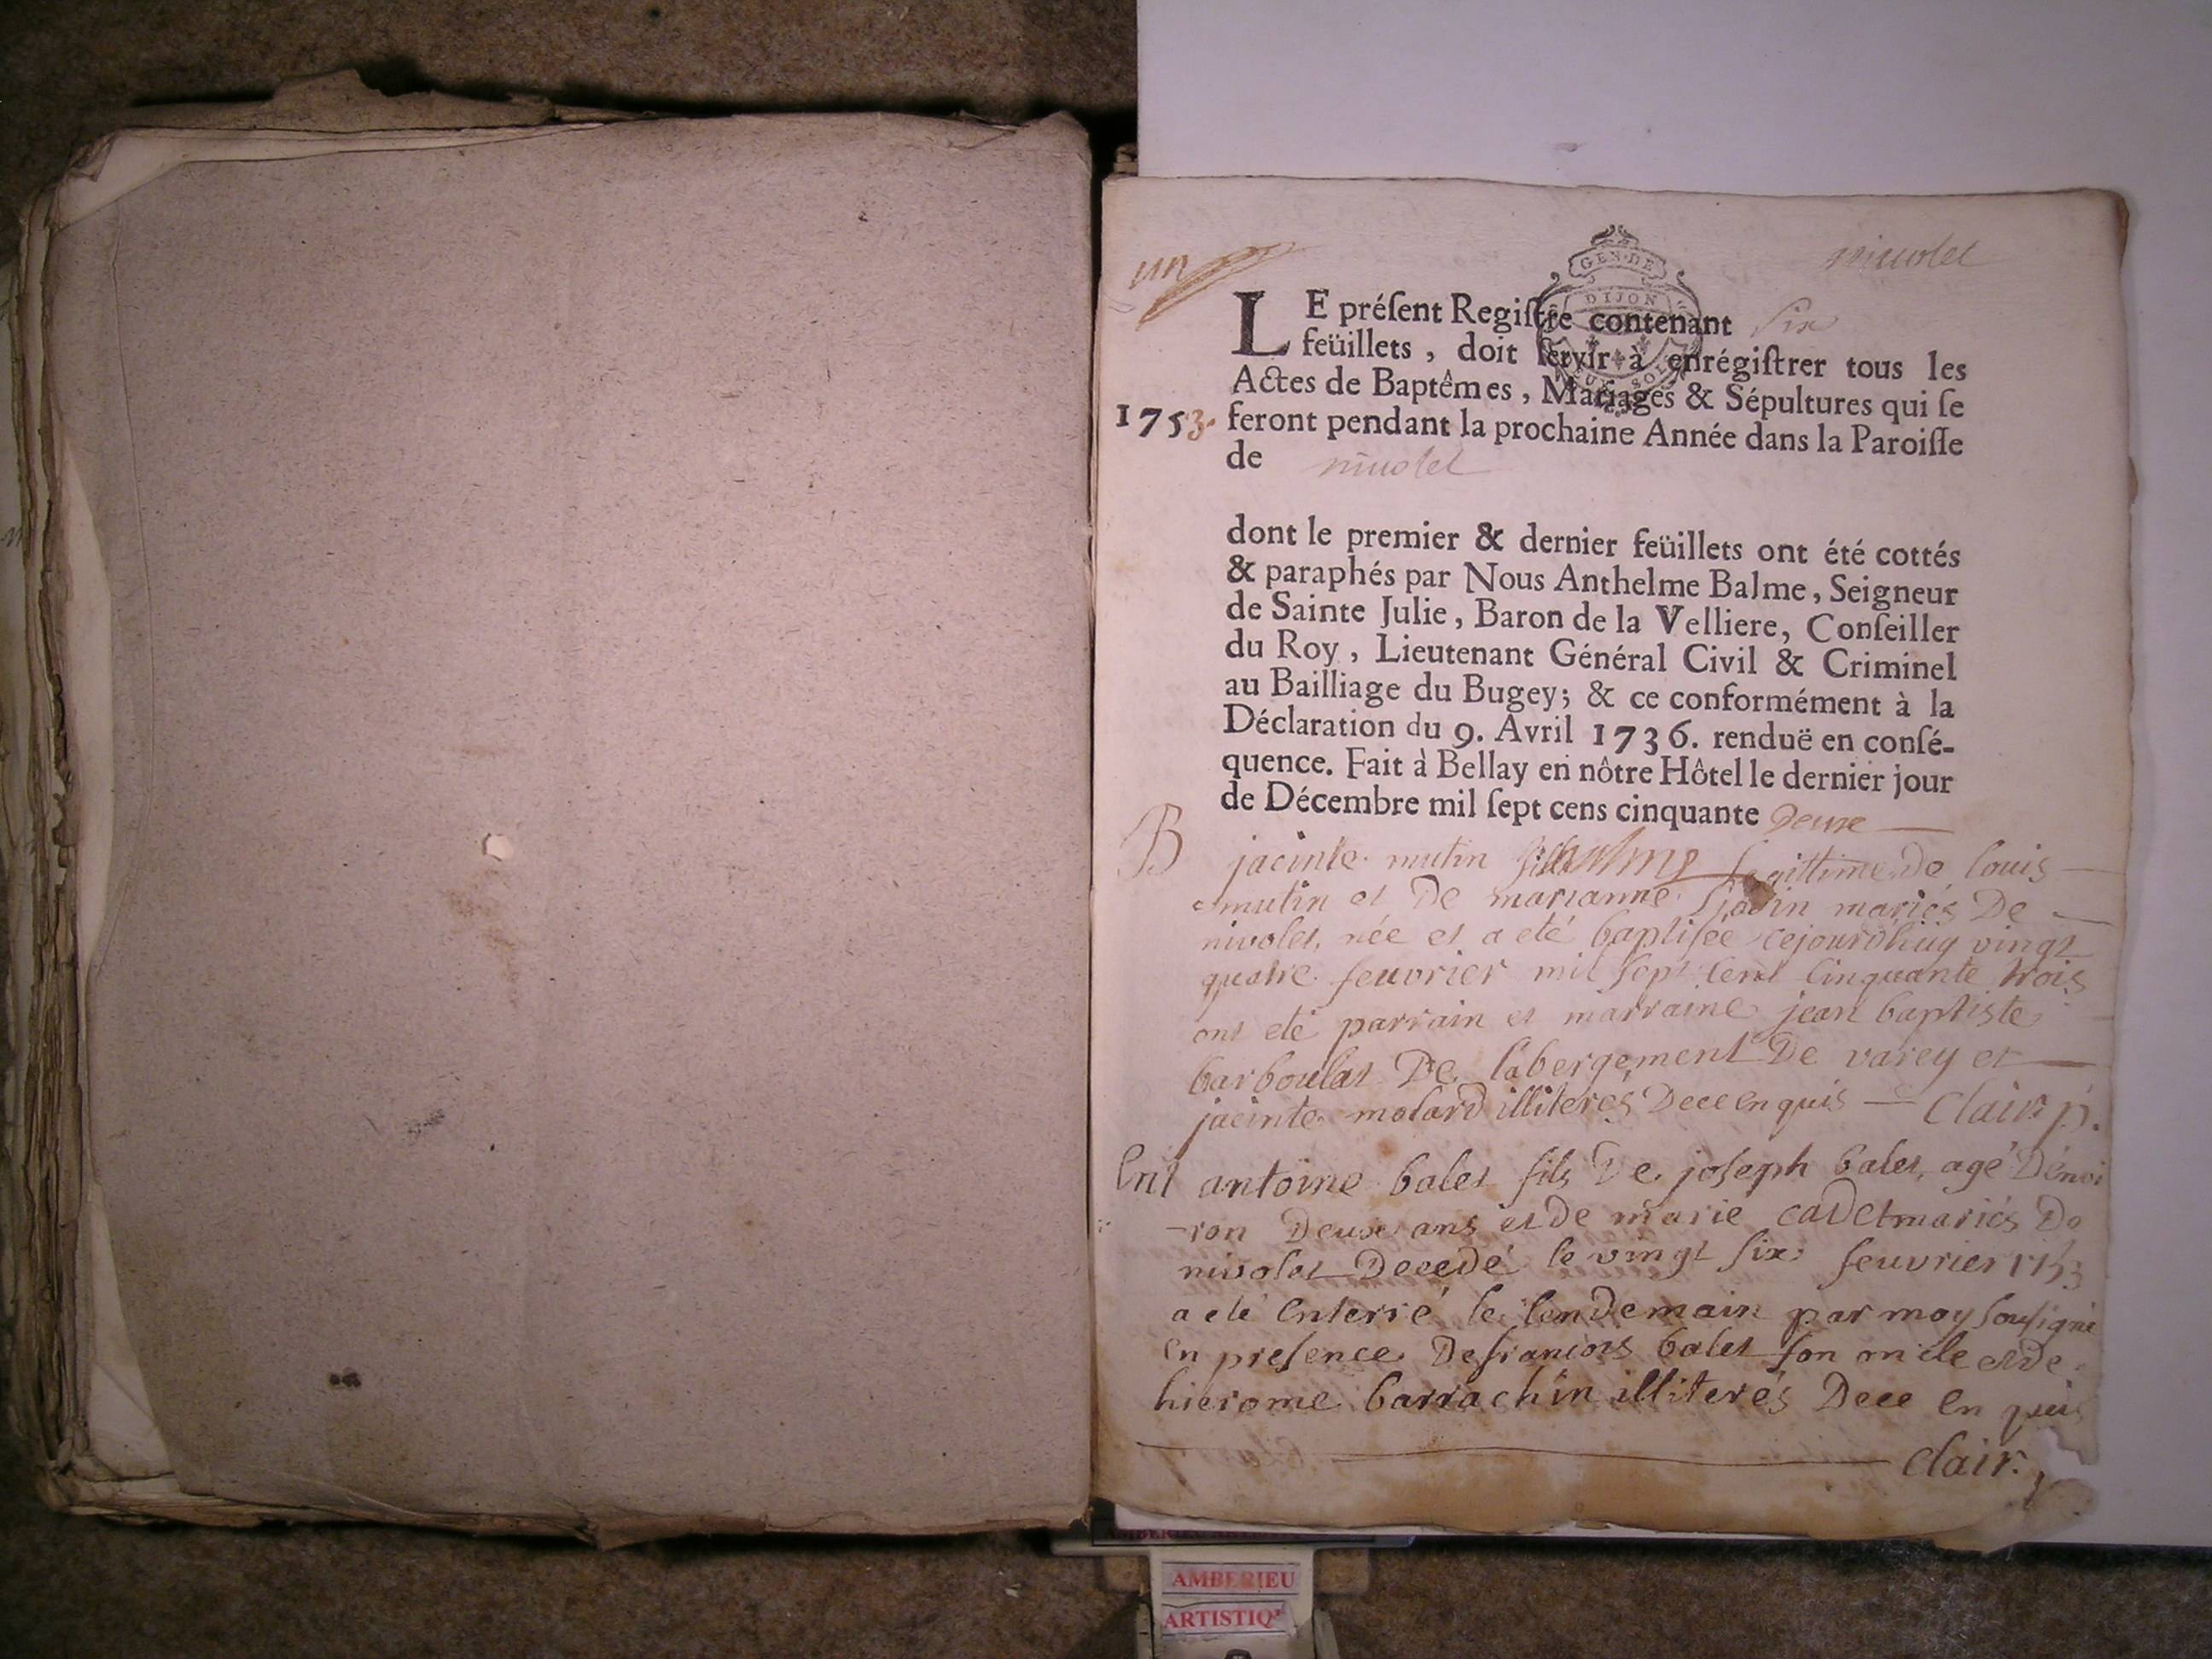 un
nivolet
GEN. DE
DIJON
DEUX SOLS
LE préſent Regiſtre contenant six
feüillets, doit ſervir à enrégiſtrer tous les
Actes de Baptêmes, Mariages & Sépultures qui ſe
1753. feront pendant la prochaine Année dans la Paroiſſe
de nivolet
dont le premier & dernier feüillets ont été cottés
& paraphés par Nous Anthelme Balme, Seigneur
de Sainte Julie, Baron de la Velliere, Conſeiller
du Roy, Lieutenant Général Civil & Criminel
au Bailliage du Bugey; & ce conformément à la
Déclaration du 9. Avril 1736. renduë en conſé-
quence. Fait à Bellay en nôtre Hôtel le dernier jour
de Décembre mil ſept cens cinquante Deux
B jacinte mutin legittime De louis
mutin et De marianne mariés De
nivolet, née et a eté baptisée cejourdhuy vingt
quatre feuvrier mil sept cent cinquante trois
ont eté parrain et marraine jean baptiste
barboulat De labergement De varey et
jacinte molard illiterés De ce enquis Clair p.
Ent antoine balet fils De joseph balet, agé Denvi
-ron Deux ans et de marie cadet mariés De
nivolet Decedé le vingt six feuvrier 1753
a eté enterré le lendemain par moy sousigné
en presence De francois balet son oncle et de
hierome barrachin illiterés De ce en quis
Clair.
AMBERIEU
ARTISTIQ